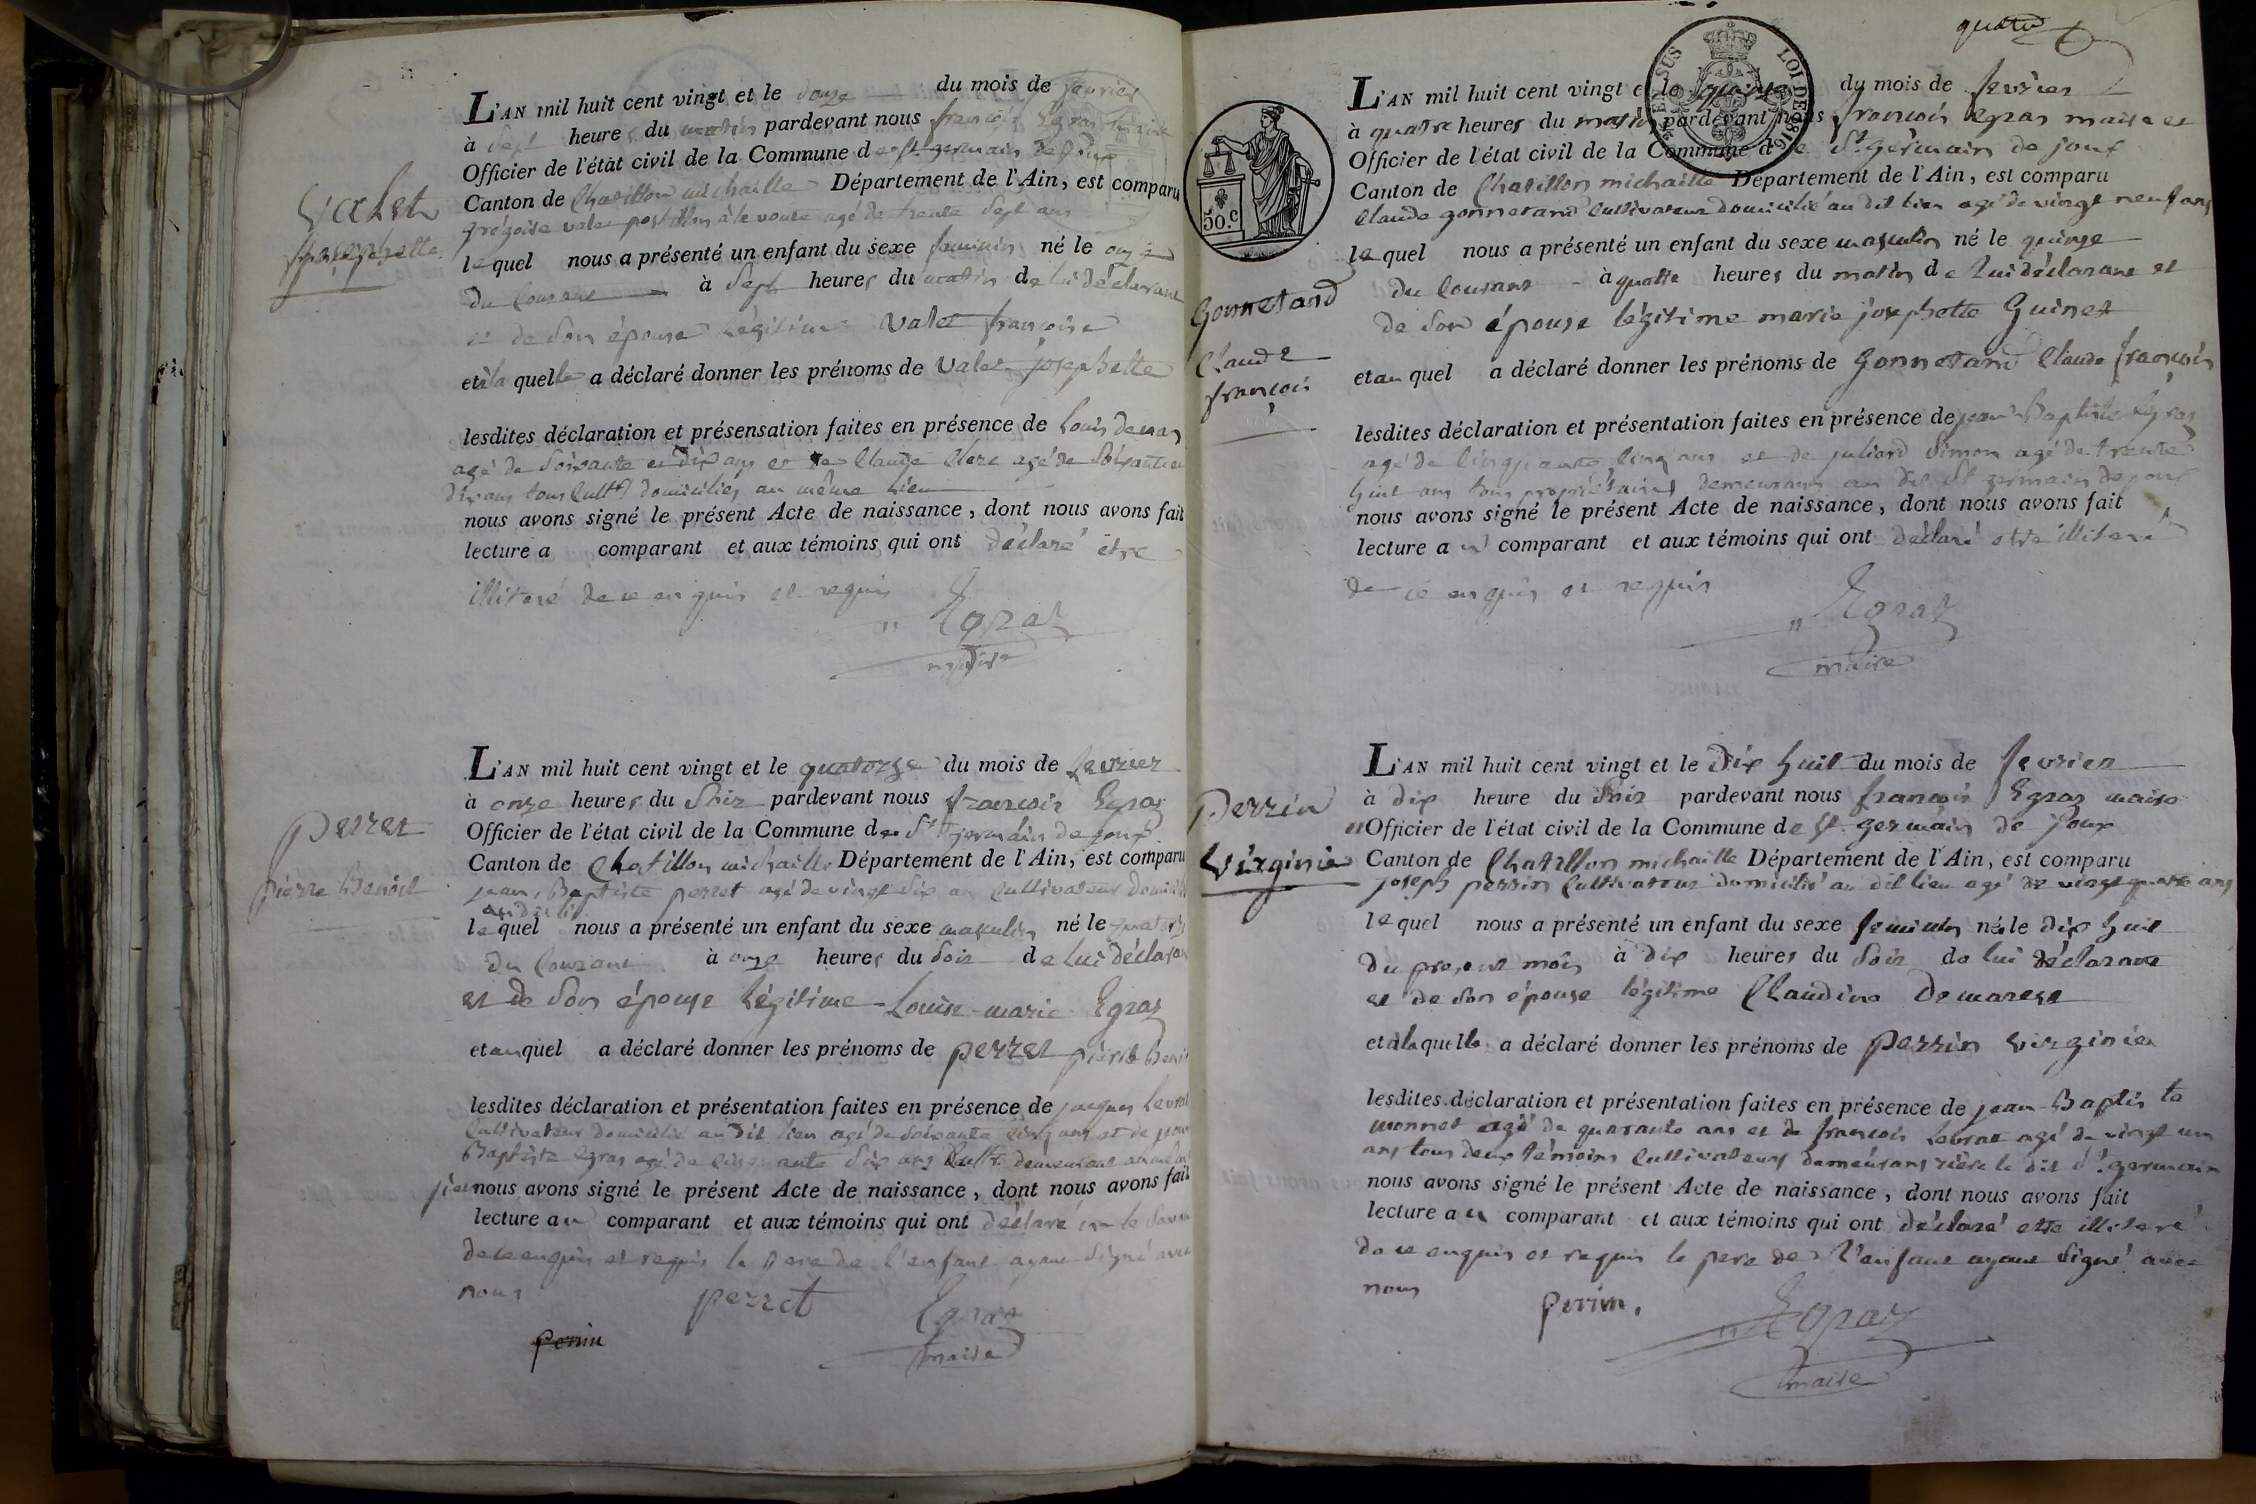 Valet
josephette
L'AN mil huit cent vingt et le douze du mois de fevrier
à sept heures du matin pardevant nous françois Egraz maire
Officier de l'état civil de la Commune de St germain de joux
Canton de Chatillon michaille Département de l'Ain, est comparu
grégoire valet postillon à le voute agé de trente sept ans
lequel nous a présenté un enfant du sexe feminin né le onze
du Courant à sept heures du matin de lui déclarant
et de son épouse légitime Valet françoise
et à la quelle a déclaré donner les prénoms de Valet josephette
lesdites déclaration et présensation faites en présence de Louis
agé de soixante et dix ans et de Claude Clerc agé de soixante et
dix ans tous Cultrs domiciliés au même lieu
nous avons signé le présent Acte de naissance, dont nous avons fait
lecture a comparant et aux témoins qui ont déclaré etre
illiteré de ce enquis et requis
Egraz
maire
perret
pierre Benoit
L'AN mil huit cent vingt et le quatorze du mois de fevrier
à onze heures du soir pardevant nous françois Egraz
Officier de l'état civil de la Commune de St germain de joux
Canton de Chatillon michaille Département de l'Ain, est comparu
jean Baptiste perret agé de vingt six ans Cultivateur domicilié
au dit lieu
lequel nous a présenté un enfant du sexe masculin né le quatorze
du Courant à onze heures du soir de lui déclarant
et de son épouse légitime Louise marie Egraz
et au quel a déclaré donner les prénoms de perret pierre Benoit
lesdites déclaration et présentation faites en présence de jacques Levrat
Cultivateur domicilié au dit lieu agé de soixante cinq ans et de jean
Baptiste Egraz agé de cinquante six ans Cultr. demeurant au même
lieu nous avons signé le présent Acte de naissance, dont nous avons fait
lecture au comparant et aux témoins qui ont déclaré ne le savoir
de ce enquis et requis le pere de l'enfant ayant signé avec
nous
perret
Egraz
perrin
maire
quatre
TIMBRE EN SUS
LOI DE 1816
50.c
Gonnetand
Claude
françois
L'AN mil huit cent vingt et le quinze du mois de fevrier
à quatre heures du matin pardevant nous françois Egraz maire et
Officier de l'état civil de la Commune de St germain de joux
Canton de Chatillon michaille Département de l'Ain, est comparu
Claude gonnetand Cultivateur domicilié au dit lieu agé de vingt neuf ans
lequel nous a présenté un enfant du sexe masculin né le quinze
du Courant à quatre heures du matin de lui déclarant et
de son épouse légitime marie josephette Guinet
et au quel a déclaré donner les prénoms de Gonnetand Claude françois
lesdites déclaration et présentation faites en présence de jean Baptiste Egraz
agé de cinquante cinq ans et de juliard simon agé de trente
huit ans tous propriétaires demeurans au dit St germain de joux
nous avons signé le présent Acte de naissance, dont nous avons fait
lecture au comparant et aux témoins qui ont déclaré etre illiteré
de ce enquis et requis
Egraz
maire
perrin
Virginie
L'AN mil huit cent vingt et le dix huit du mois de fevrier
à dix heure du soir pardevant nous françois Egraz maire
Officier de l'état civil de la Commune de St germain de joux
Canton de Chatillon michaille Département de l'Ain, est comparu
joseph perrin Cultivateur domicilié au dit lieu agé de vingt quatre ans
lequel nous a présenté un enfant du sexe feminin né le dix huit
du present mois à dix heures du soir de lui déclarant
et de son épouse légitime Claudine Demarest
et à la quelle a déclaré donner les prénoms de perrin virginie
lesdites déclaration et présentation faites en présence de jean Baptiste
monnet agé de quarante ans et de françois Levrat agé de vingt un
ans tous deux témoins Cultivateurs demeurans rière le dit St germain
nous avons signé le présent Acte de naissance, dont nous avons fait
lecture au comparant et aux témoins qui ont déclaré etre illiteré
de ce enquis et requis le pere de l'enfant ayant signé avec
nous
perrin.
Egraz
maire